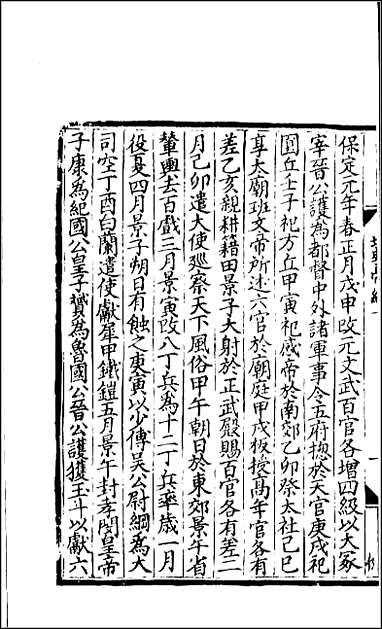 保定元年春正月戊申改元文武百官各增四級以大冢
宰晉公護爲都督中外諸軍事令五府揔於天官庚戌祀
圓丘壬子祀方丘甲寅祀感帝於南郊乙卯祭太社己巳
享太廟班文帝所述六官於廟庭甲戌板授高年官各有
差乙亥親耕籍田景子大射於正武殿賜百官各有差二
月己卯遣大使廵察天下風俗甲午朝日於東郊景午省
輦輿去百戲三月景寅改八丁兵爲十二丁兵率歳一月
役夏四月景子朔日有蝕之庚寅以少傅吳公尉綱爲大
司空丁酉白蘭遣使獻犀甲鐵鎧五月景午封孝閔皇帝
子康爲紀國公皇子贇爲魯國公晉公護獲玉斗以獻六